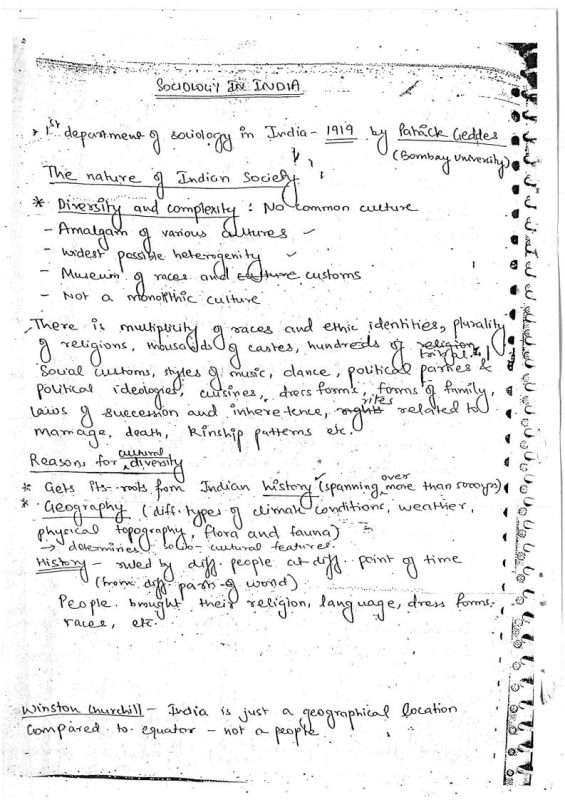 SOCIOLOGY IN INDIA
* 1st department of sociology in India - 1919 by Patrick Geddes
(Bombay University)
The nature of Indian Society
* Diversity and complexity : No common culture
- Amalgam of various cultures
- Widest possible heterogenity
- Museum of races and culture customs
- Not a monolithic culture
There is multiplicity of races and ethic identities, plurality
of religions, thousands of castes, hundreds of religion tribal
Social customs, styles of music, dance, political parties &
political ideologies, cuisines, dress forms, forms of family,
laws of succession and inheretence, rights rites related to
marriage, death, kinship patterns etc.
Reasons for cultural diversity
* Gets its roots from Indian history (spanning over more than 5000yrs)
* Geography (diff. types of climate conditions, weather,
physical topography, flora and fauna)
→ determines socio-cultural features.
History - ruled by diff. people at diff. point of time
(from diff. parts of world)
People brought their religion, language, dress forms,
races, etc.
Winston Churchill - India is just a geographical location
compared to equator - not a people